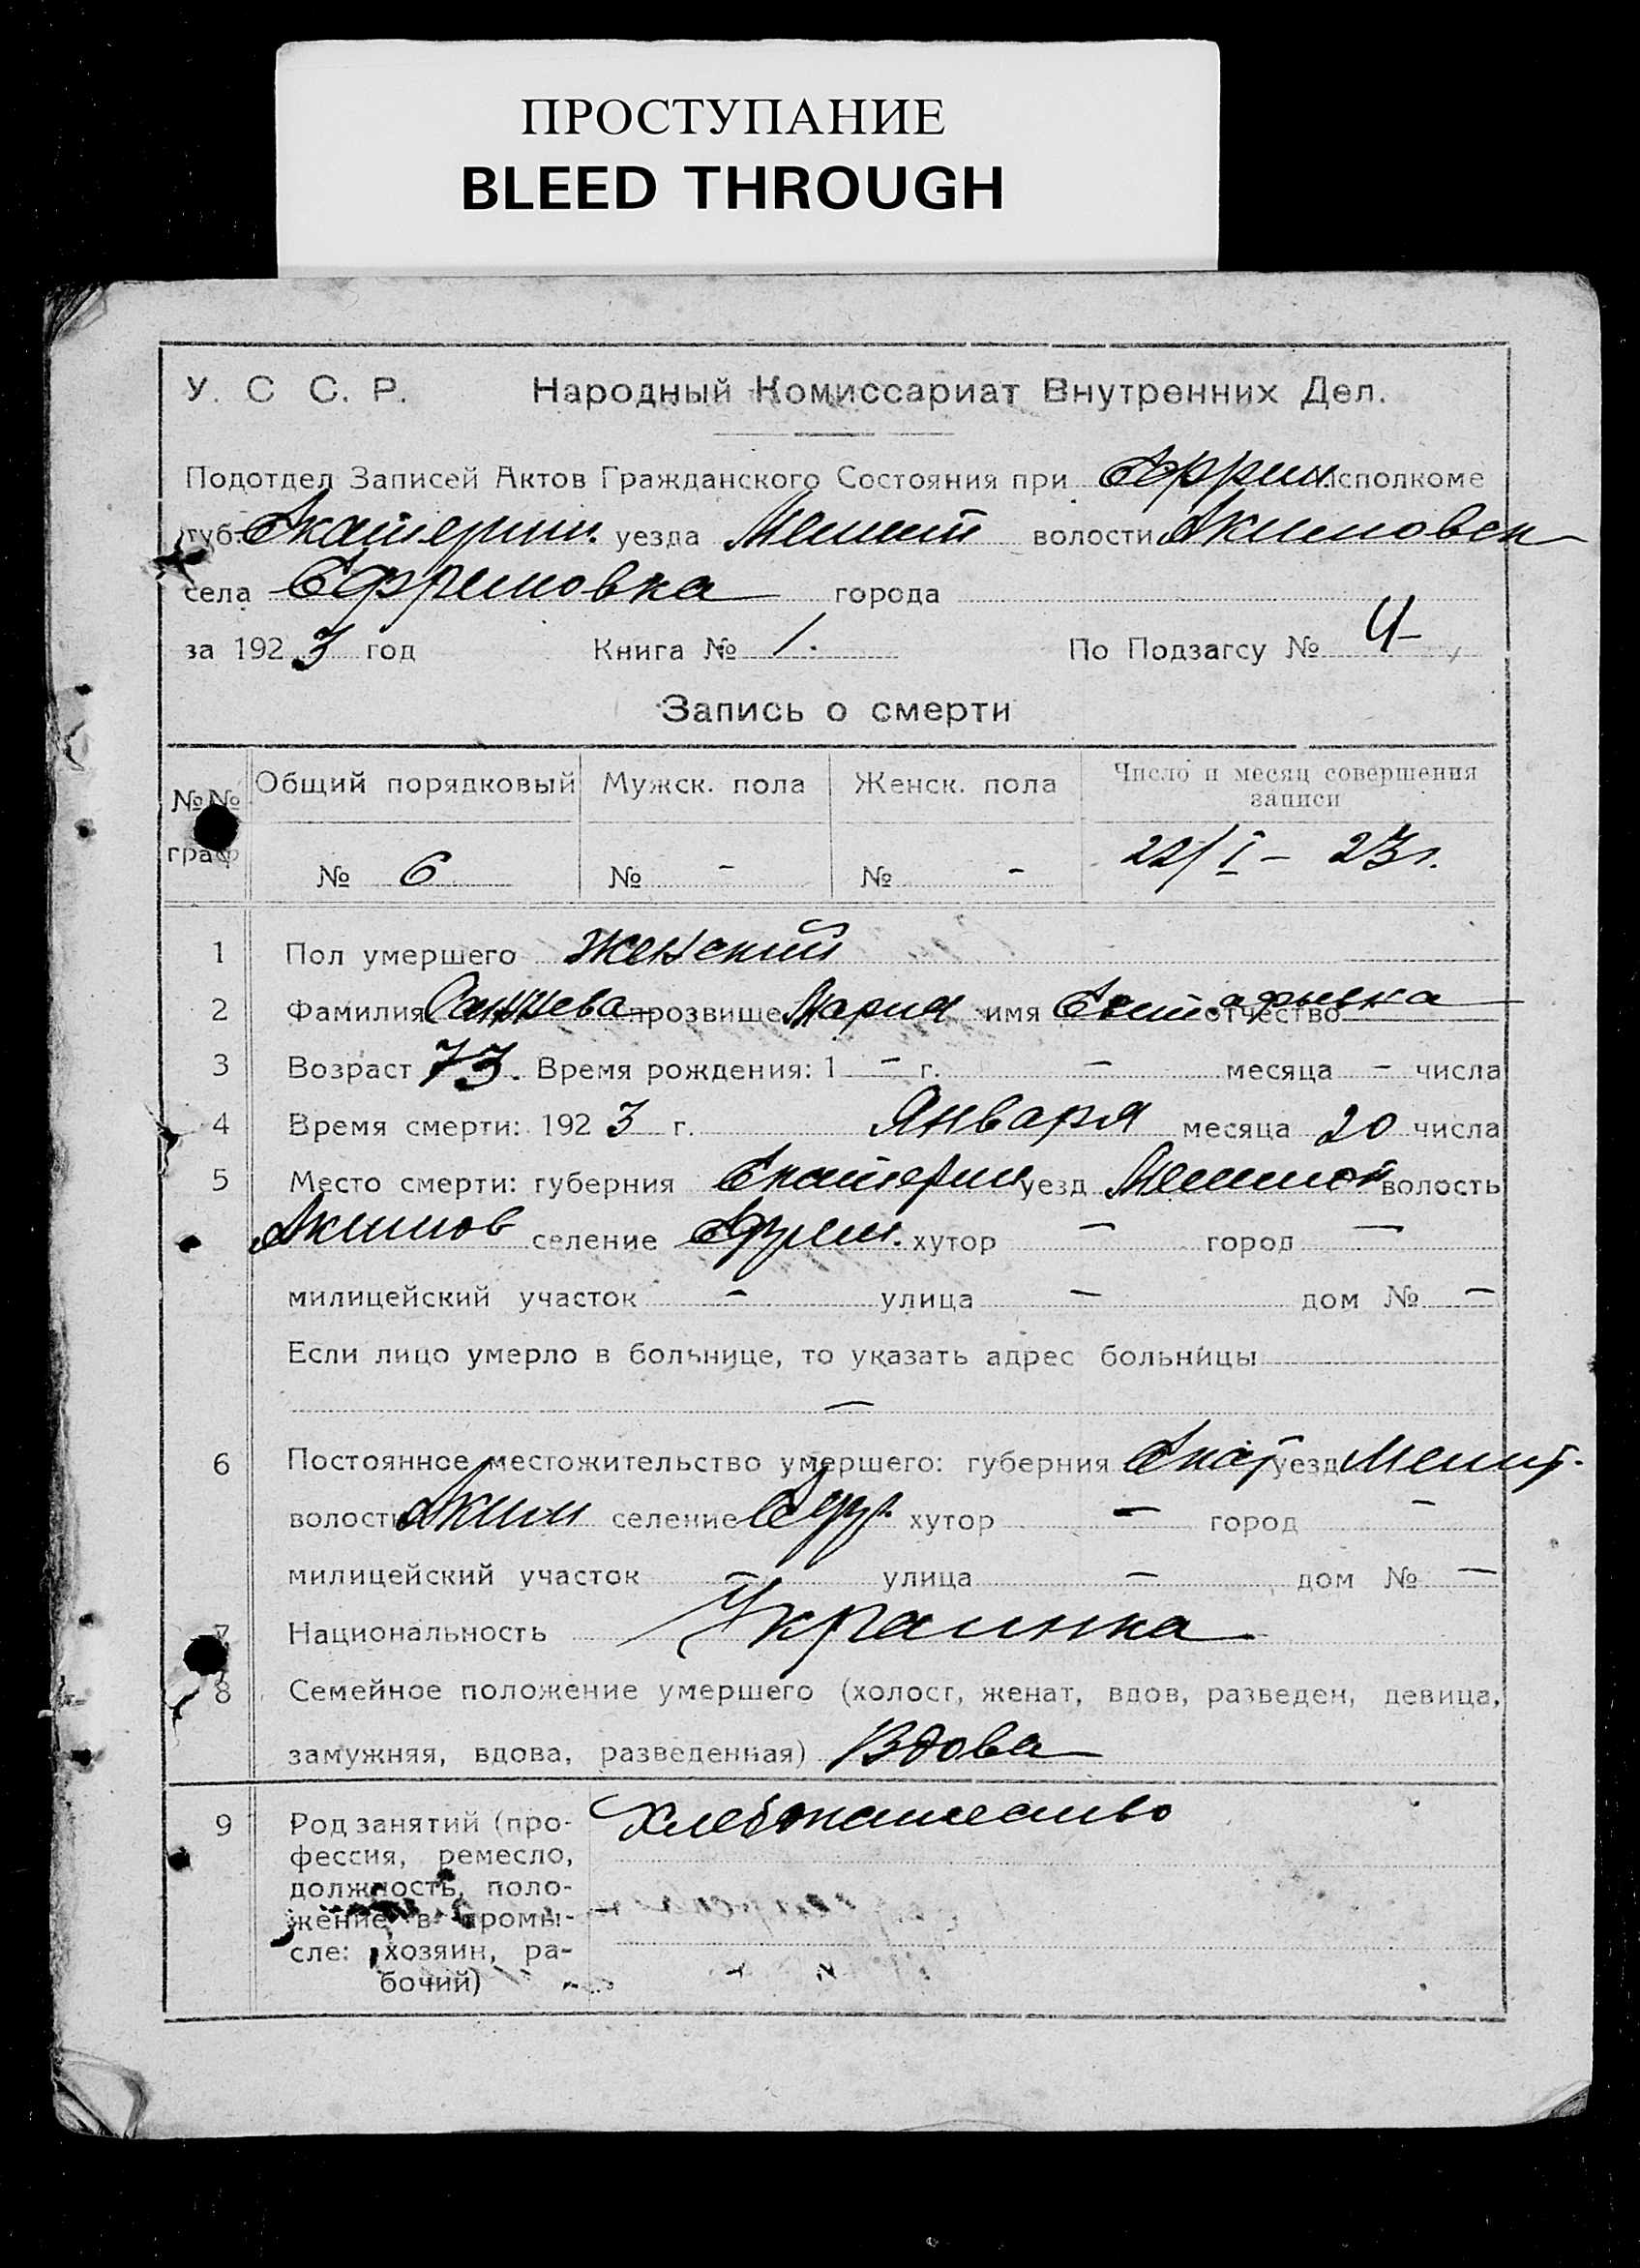 ПРОСТУПАНИЕ
BLEED THROUGH
У. С С. Р. Народный Комиссариат Внутренних Дел.
Подотдел Записей Актов Гражданского Состояния при Ефрем. исполкоме
губ. Екатерин. уезда Мелит волости Акимовск
села Ефремовка города
за 1923 год Книга № 1. По Подзагсу № 4
Запись о смерти
№№ граф Общий порядковый Мужск. пола Женск. пола Число и месяц совершения записи
№ 6 № - № - 22/I - 23 г.
1 Пол умершего Женский
2 Фамилия прозвище Мария имя отчество
3 Возраст 73. Время рождения: 1 - г. - месяца - числа
4 Время смерти: 1923 г. Января месяца 20 числа
5 Место смерти: губерния Екатерин уезд Мелитоп волость
Акимов селение Ефрем. хутор - город -
милицейский участок - улица - дом № -
Если лицо умерло в больнице, то указать адрес больницы
-
6 Постоянное местожительство умершего: губерния Екат уезд Мелит.
волость Аким селение Ефр. хутор - город -
милицейский участок - улица - дом № -
7 Национальность Украинка
8 Семейное положение умершего (холост, женат, вдов, разведен, девица,
замужняя, вдова, разведенная) Вдова
9 Род занятий (про- Хлебопашество
фессия, ремесло,
должность, поло-
жение в промы-
сле: хозяин, ра-
бочий)